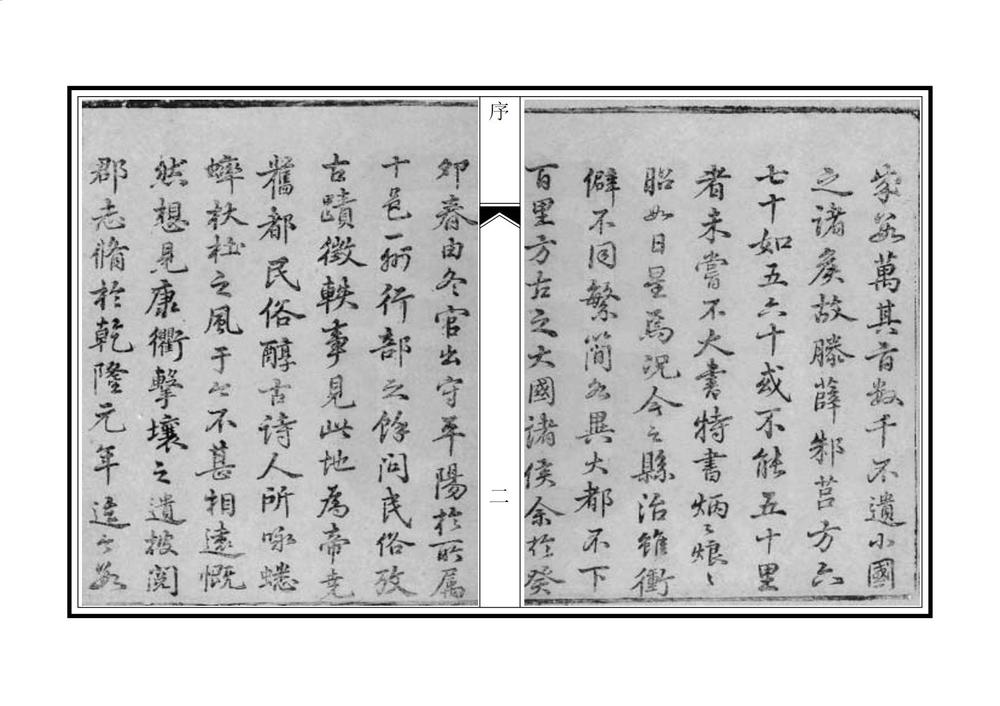 家数萬其言数千不遺小國
之諸侯故滕薛邾莒方六
七十如五六十或不能五十里
者未嘗不大書特書炳〻烺〻
昭如日星焉況今之縣治雖衝
僻不同繁簡各異大都不下
百里方古之大國諸侯余於癸
序
二
卯春由冬官出守平陽於所属
十邑一州行部之餘問民俗攷
古蹟徵軼事見此地為帝尭
舊都民俗醇古詩人所咏蟋
蟀杕杜之風于今不甚相遠慨
然想見康衢擊壤之遺披閱
郡志脩於乾隆元年迄今